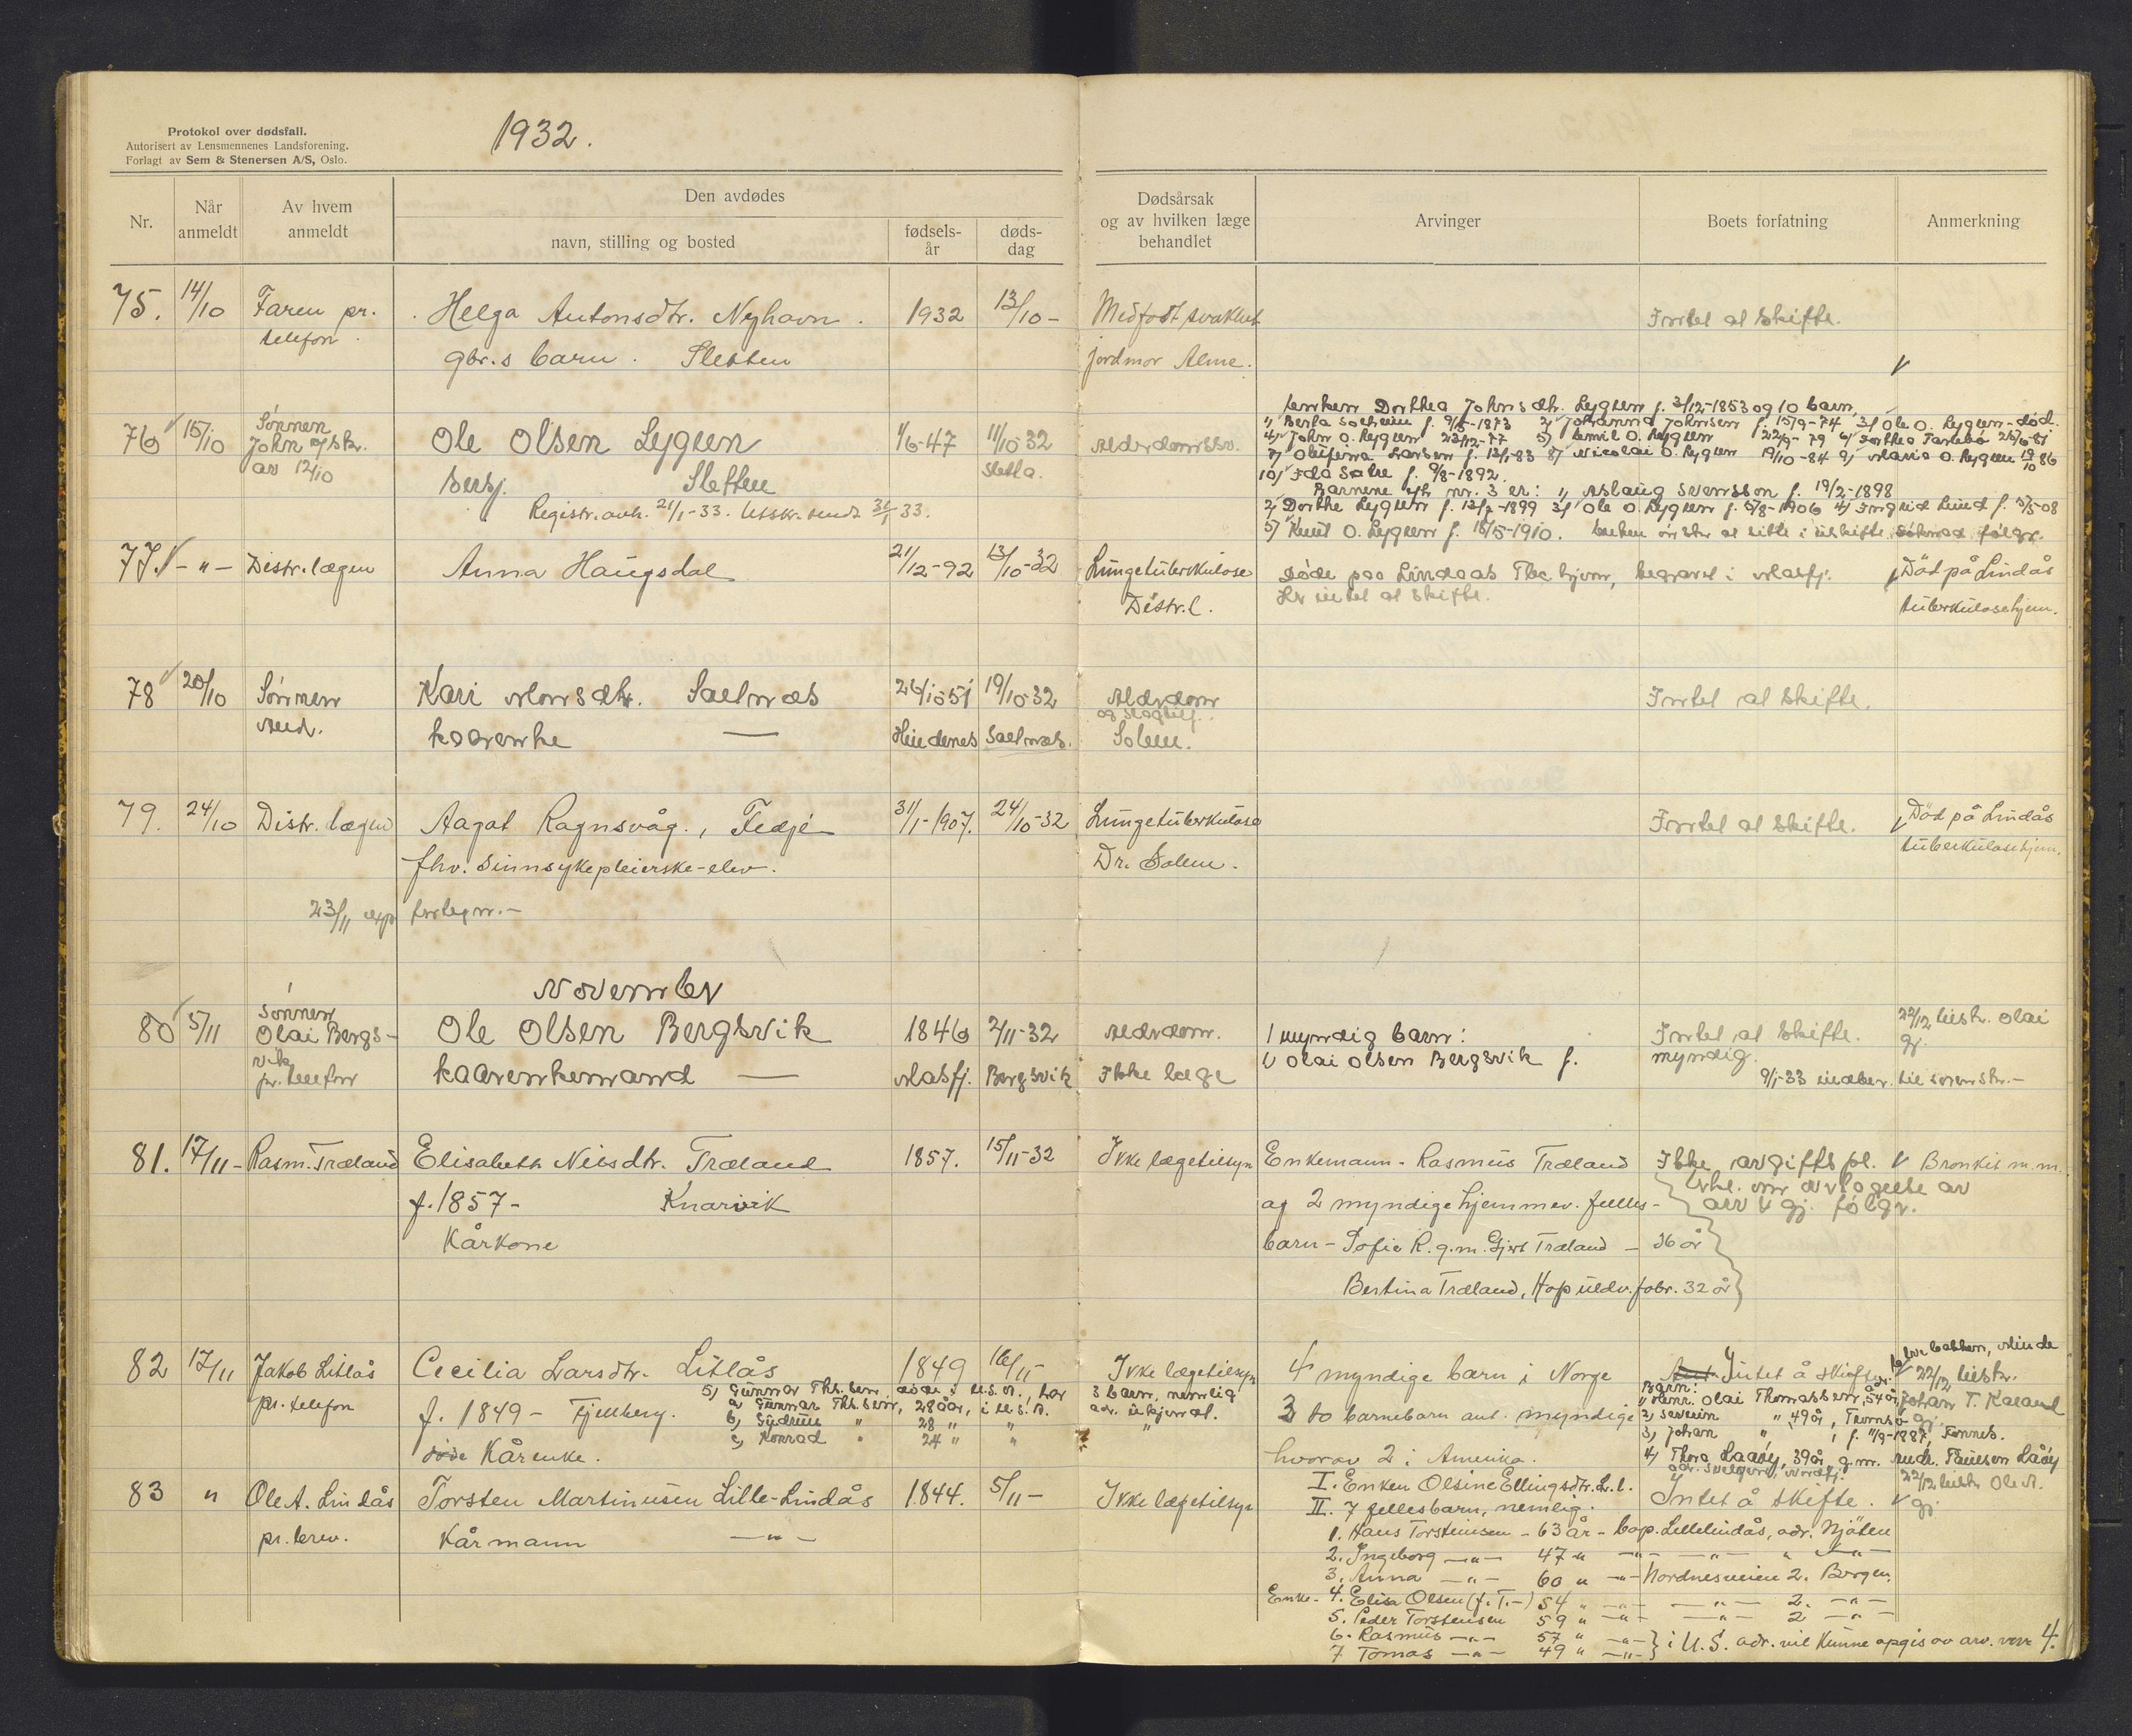 Protokol over dødsfall.
Autorisert av Lensmennenes Landsforening.
Forlagt av Sem & Stenersen A/S, Oslo.
1932.
Nr.
Når anmeldt
Av hvem anmeldt
Den avdødes
navn, stilling og bosted
fødsels-år
døds-dag
Dødsårsak og av hvilken læge behandlet
Arvinger
Boets forfatning
Anmerkning
75. 14/10 Faren pr. Helga Antonsdtr. Nyhavn. 1932 13/10- Medfødt svakhet Intet at skifte.
telefon. gbr.s barn. Sletten jordmor Alme.
Enken Dorthea Johnsdtr. Lygren f. 3/12-1853 og 10 barn.
76 15/10 Sønnen Ole Olsen Lygren 1/6-47 11/10-32 Alderdomssv. 1) Berta Solheim f. 9/5-1873 2) Johanna Johnsen f. 15/9-74 3) Ole O. Lygren - død.
John O. Lygren 23/12-77 5) Emil O. Lygren 22/9-79 6) Dorthea
av 12/10 7) Olufina Larsen f. 13/1-83 8) Nicolai O. Lygren 19/10-84 9) Maria O. Lygren 19/10 86
Sletten Sletta. 10) Ida f. 9/8-1892.
Registr. anh. 21/1-33. Utskr. sendt 31/1-33. Barnene eft. nr. 3 er: 1) Aslaug Svensson f. 19/2-1898
2) Dorthe Lygren f. 13/7-1899 3) Ole O. Lygren f. 5/8-1906 4) Ingrid Lund f. 5/5-08
5) Knut O. Lygren f. 18/5-1910. Enken ønsker at sitte i uskifte. Søknad følger.
77. - " - Distr.lægen Anna Haugsdal 21/12-92 13/10-32 Lungetuberkulose Døde paa Lindaas Tbc hjem, begravet i Masfj. Død på Lindås
Distr.l. intet at skifte. tuberkulosehjem.
78 20/10 Sønnen Kari Monsdtr. Saelnæs 26/10-51 19/10-32 Alderdom Intet at skifte.
And. kaarenke — Hundenes Saelnæs. Solem.
79. 24/10 Distr. lægen Aagot Ragnsvåg., Fedje 31/1-1907. 24/10-32 Lungetuberkulose Intet at skifte. Død på Lindås
fhv. sinnsykepleierske-elev. Dr. Solem. tuberkulosehjem.
23/11
November
80 5/11 Sønnen Ole Olsen Bergsvik 1846 2/11-32 Alderdom. 1 myndig barn: Intet at skifte. 22/12 Olai
Olai Bergsvik kaarenkemand — Masfj. Bergsvik Ikke læge 1) Olai Olsen Bergsvik f. myndig. gj.
pr. telefon 9/1-33 indber. til sorenskr.-
81. 17/11- Rasm. Træland Elisabeth Nilsdtr. Træland 1857. 15/11-32 Ikke lægetilsyn Enkemann - Rasmus Træland Ikke avgiftspl. Bronkit m.m.
f. 1857- Knarvik og 2 myndige hjemmev. felles- erkl. om overtagelse av
Kårkone arv & gj. følger.
barn - Sofie R. g.m. Gjert Træland - 36 år
Bertina Træland, Hop uldv.fabr. 32 år
82 17/11 Jakob Litlås Cecilia Larsdtr. Litlås 1849 16/11 Ikke lægetilsyn 4 myndige barn i Norge Intet å skifte. 22/12
pr. telefon 5) Gunnar Ths.sen, døde i U.S.A., har 3 barn, nemlig Barn:
f. 1849 - Fjellberg. a) Gunnar Ths.sen, 28 år, i U.S.A. adr. ukjendt. 3 do barnebarn ant. myndige 1) Olai Thomassen, 54 år, Johan T. Kaland
b) Gudrun " 28 " " " 2) Severin " 49 år, gj.
c) Konrad " 24 " " 3) Johan " , f. 11/9-1887, Fonnes.
Kårenke. hvorav 2 i Amerika. 4) Thora Laaøy, 39 år, g.m. Laaøy
83 " Ole A. Lindås Torsten Martinusen Lille-Lindås 1844. 5/11- Ikke lægetilsyn I. Enken Olsine Ellingsdtr. L.l. Intet å skifte. 22/12 Ole A.
pr. brev. Kårmann - " - II. 7 fellesbarn, nemlig: gj.
1. Hans Torsteinsen - 63 år - bop. Lillelindås, adr. Mjåten
2. Ingeborg - " - 47 " - " -
3. Anna - " - 60 " - " - Nordnesveien 2. Bergen.
Enke - 4. Elisa Olsen (f. T.-) 54 " - " - 2. - " -
5. Peder Torsteinsen 59 " - " - 2 - " -
6. Rasmus - " - 57 " - " -
7. Tomas - " - 49 " - " - } i U.S. adr. vil kunne opgis av arv. nr. 4.